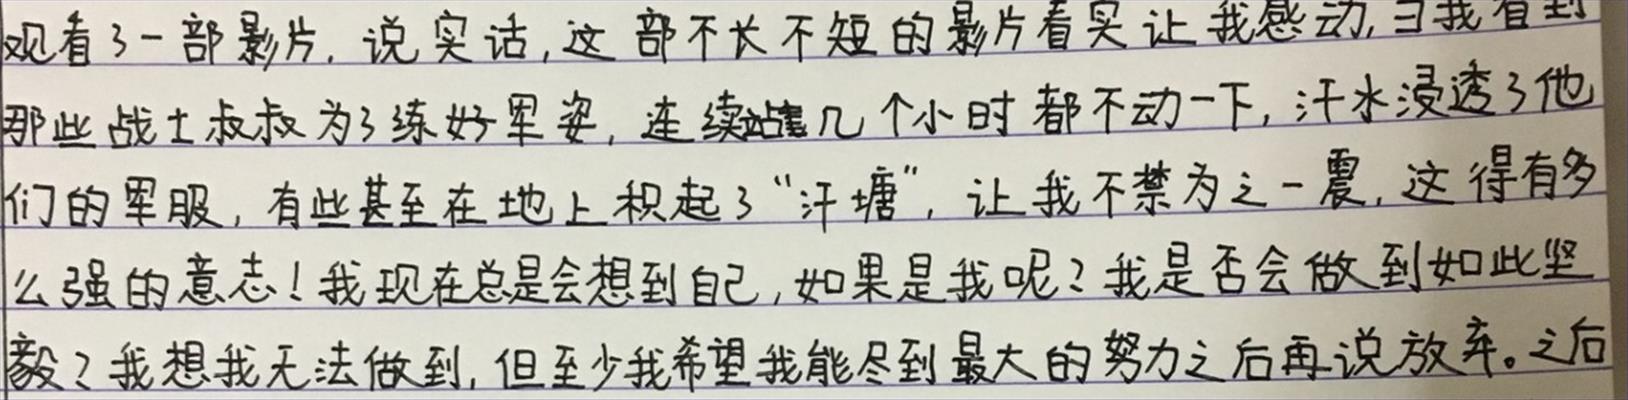 观看了一部影片，说实话，这部不长不短的影片着实让我感动，当我看到
那些战士叔叔为了练好军姿，连续站着几个小时都不动一下，汗水浸透了他
们的军服，有些甚至在地上积起了“汗塘”，让我不禁为之一震，这得有多
么强的意志！我现在总是会想到自己，如果是我呢？我是否会做到如此坚
毅？我想我无法做到，但至少我希望我能尽到最大的努力之后再说放弃。之后